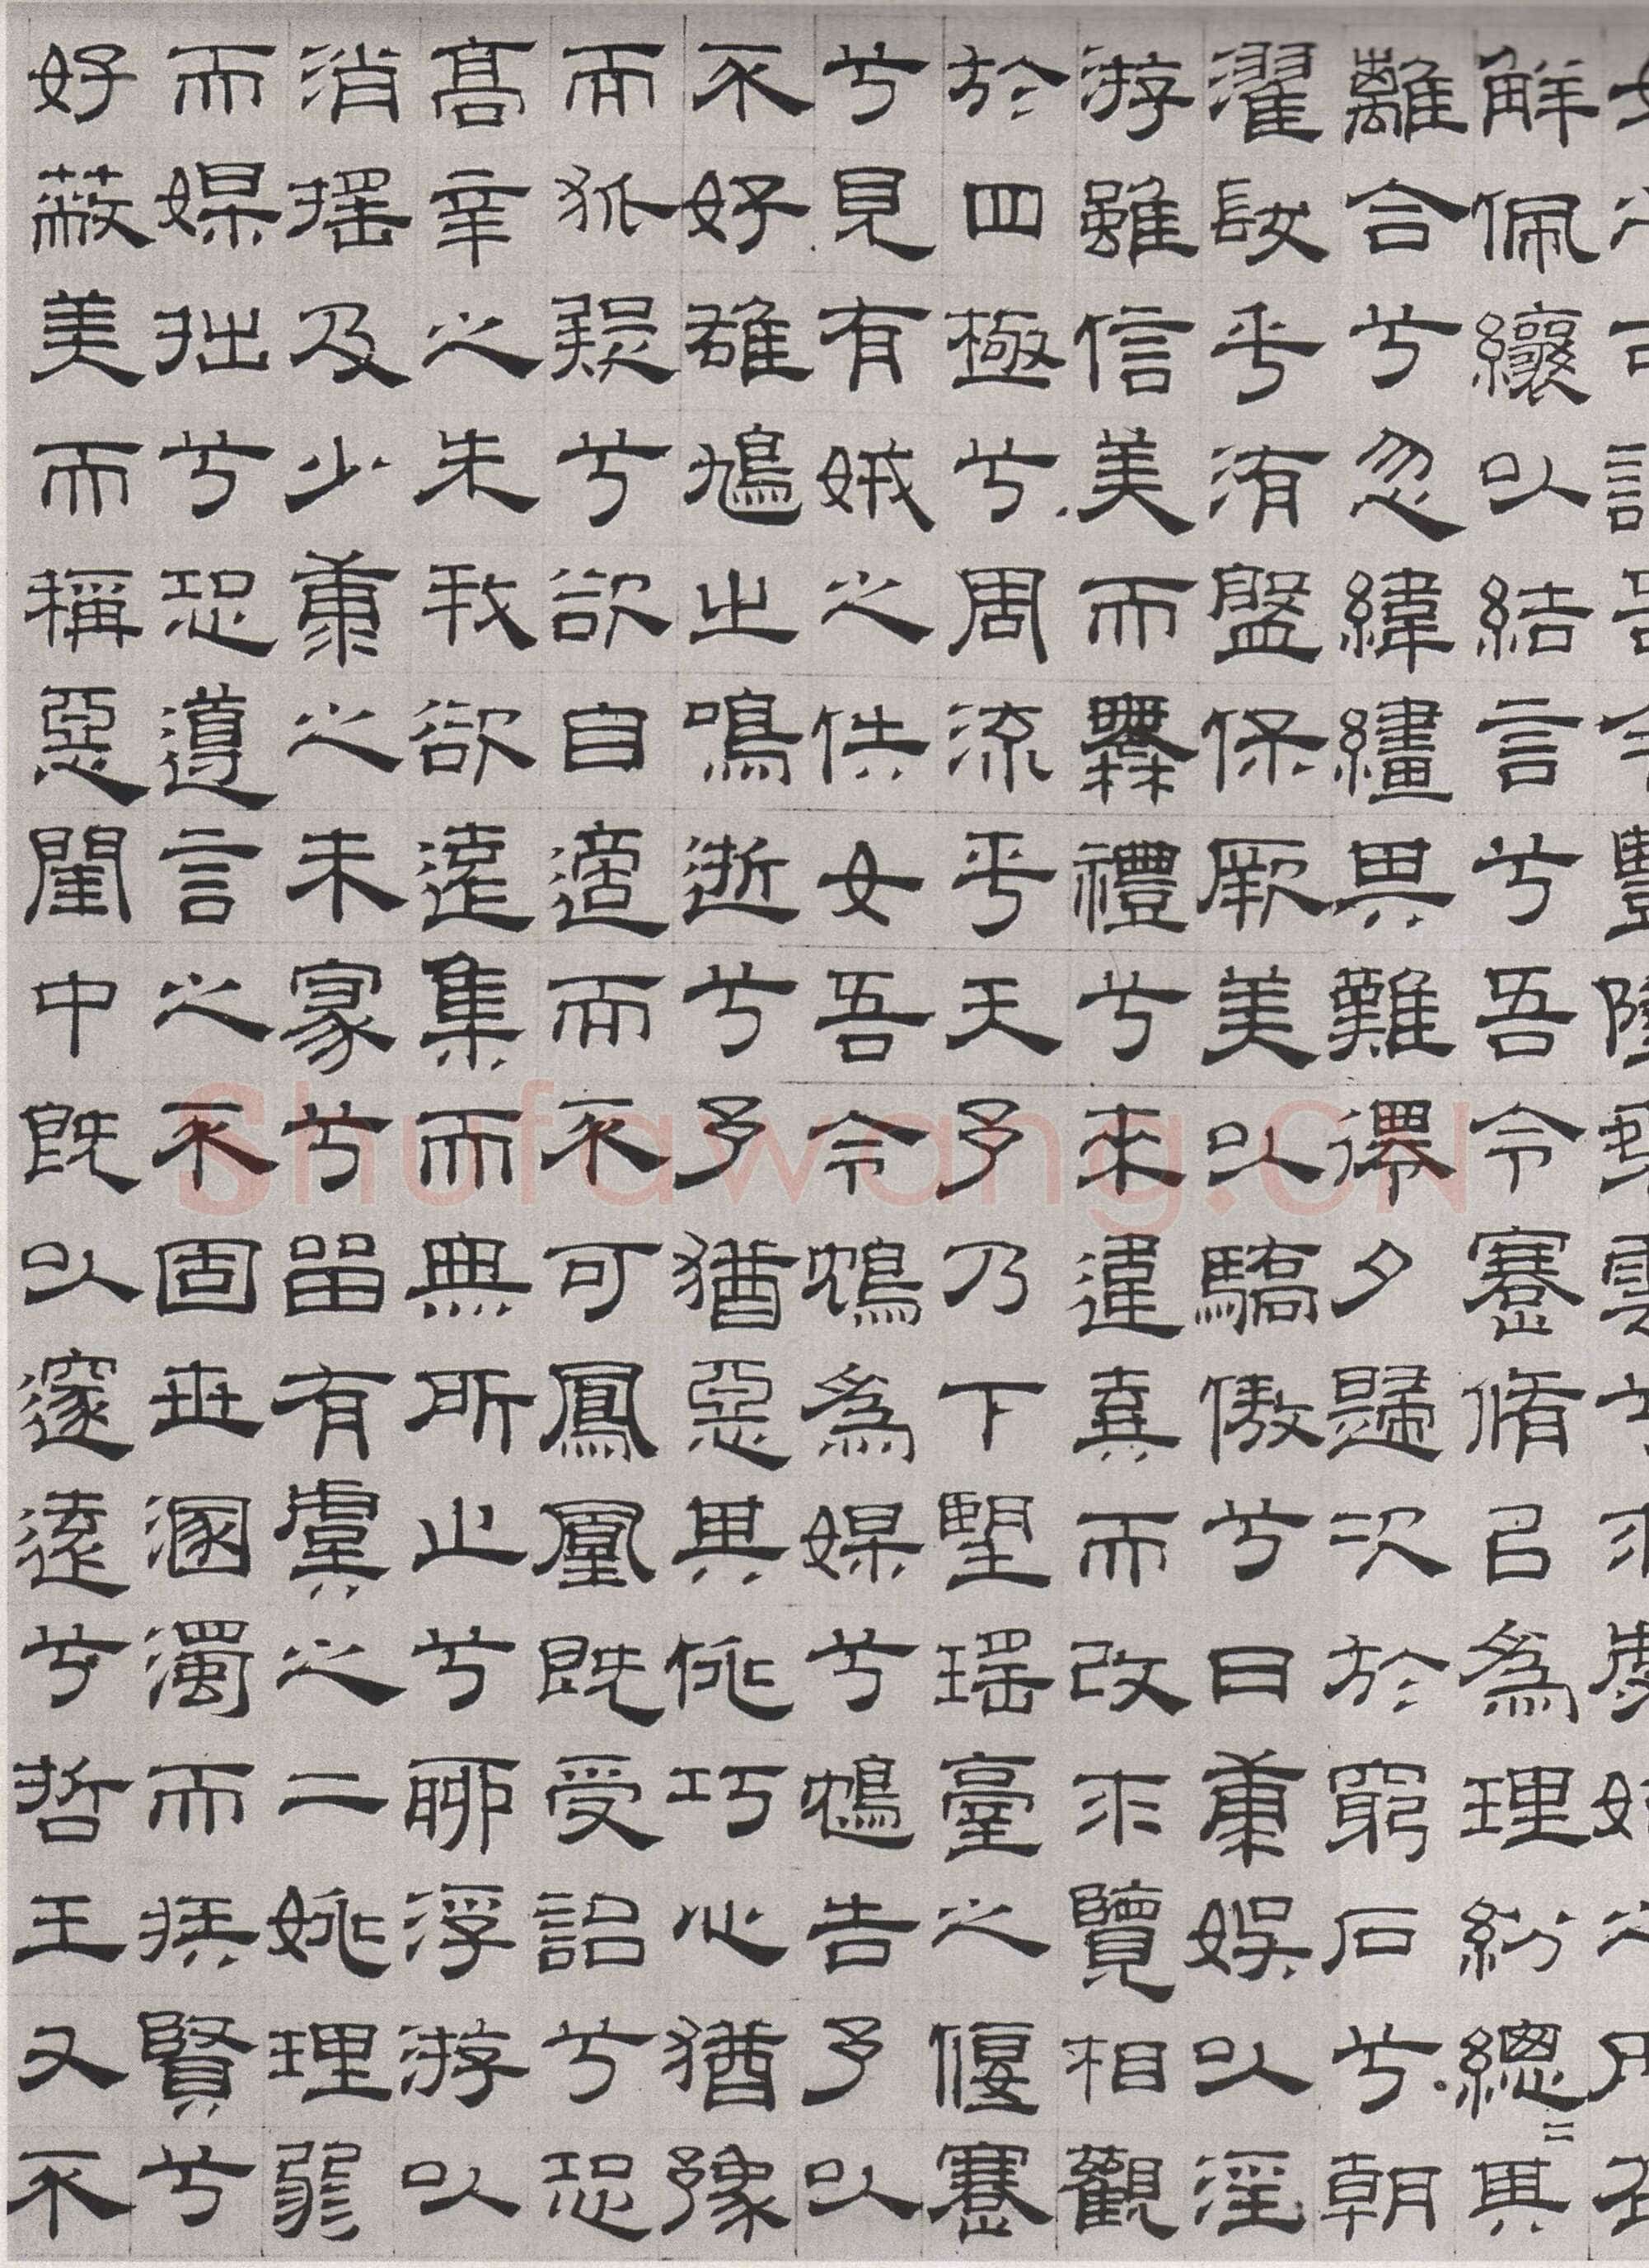 女之可詒吾令豐隆乘雲兮求虙妃之所在
解佩纕以結言兮吾令蹇脩㠯為理紛總=其
離合兮忽緯繣其難遷夕歸次於窮石兮朝
濯髮乎洧盤保厥美以驕傲兮日康娛以淫
游雖信美而無禮兮來違棄而改求覽相觀
於四極兮周流乎天予乃下望瑤臺之偃蹇
兮見有娀之佚女吾令鴆為媒兮鴆告予以
不好雄鳩之鳴逝兮予猶惡其佻巧心猶豫
而狐疑兮欲自適而不可鳳凰既受詒兮恐
高辛之先我欲遠集而無所止兮聊浮游以
消搖及少康之未家兮留有虞之二姚理弱
而媒拙兮恐導言之不固世溷濁而嫉賢兮
好蔽美而稱惡閨中既以邃遠兮哲王又不
Shufawang.CN